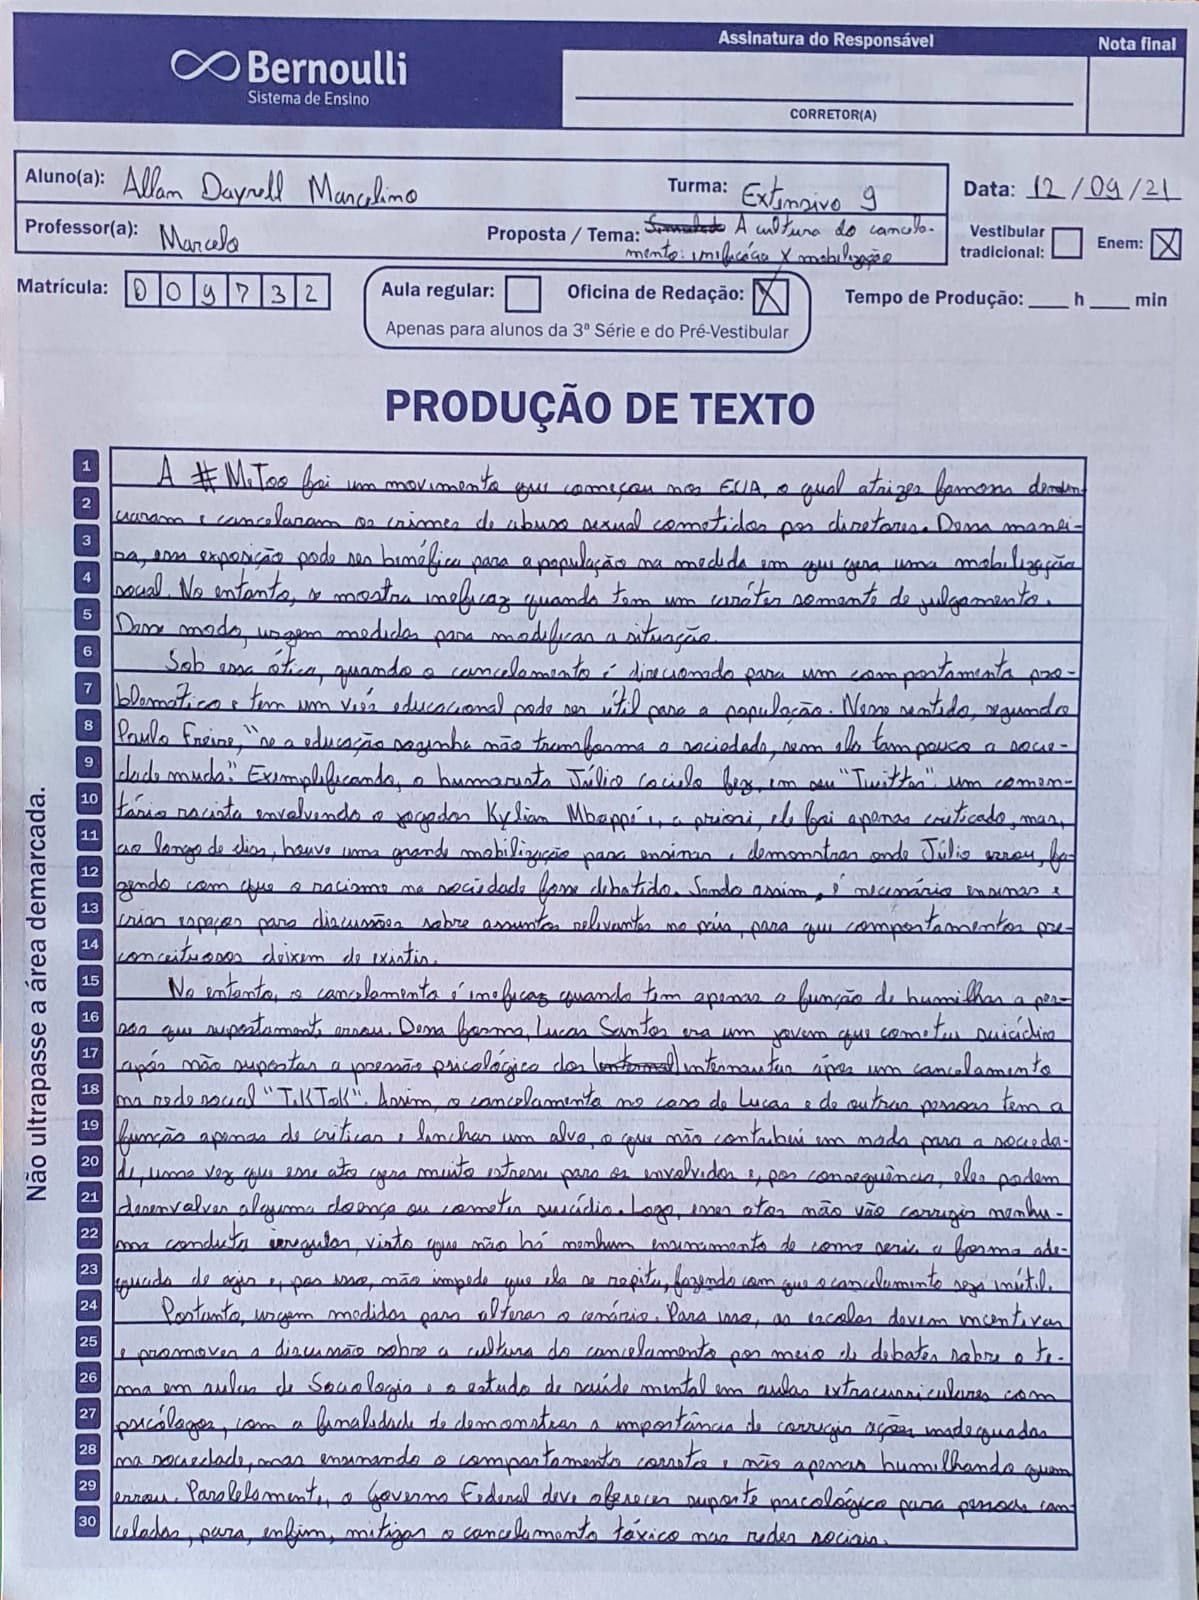 Bernoulli
Sistema de Ensino
Assinatura do Responsável
Nota final
CORRETOR(A)
Aluno(a): Allan Dayrell Marcelino
Turma: Extensivo 9
Data: 12/09/21
Professor(a): Marcelo
Proposta / Tema: A cultura do cancela-
mento: ineficácia X mobilização
Vestibular tradicional:
Enem: X
Matrícula: 009732
Aula regular:
Oficina de Redação: X
Apenas para alunos da 3ª Série e do Pré-Vestibular
Tempo de Produção: ___ h ___ min
PRODUÇÃO DE TEXTO
Não ultrapasse a área demarcada.
1 A #MeToo foi um movimento que começou nos EUA, o qual atrizes famosas denun
2 ciaram e cancelaram os crimes de abuso sexual cometidos por diretores. Dessa manei-
3 ra, essa exposição pode ser benéfica para a população na medida em que gera uma mobilização
4 social. No entanto, se mostra ineficaz quando tem um caráter somente de julgamento.
5 Desse modo, urgem medidas para modificar a situação.
6 Sob essa ótica, quando o cancelamento é direcionado para um comportamento pro-
7 blemático e tem um viés educacional pode ser útil para a população. Nesse sentido, segundo
8 Paulo Freire, "se a educação sozinha não transforma a sociedade, sem ela tampouco a socie-
9 dade muda." Exemplificando, o humorista Júlio Cocielo fez, em seu "Twitter" um comen-
10 tário racista envolvendo o jogador Kylian Mbappé e, a priori, ele foi apenas criticado, mas,
11 ao longo de dias, houve uma grande mobilização para ensinar e demonstrar onde Júlio errou, fa-
12 zendo com que o racismo na sociedade fosse debatido. Sendo assim, é necessário ensinar e
13 criar espaços para discussões sobre assuntos relevantes no país, para que comportamentos pre-
14 conceituosos deixem de existir.
15 No entanto, o cancelamento é ineficaz quando tem apenas a função de humilhar a pes-
16 soa que supostamente errou. Dessa forma, Lucas Santos era um jovem que cometeu suicídio
17 após não suportar a pressão psicológica dos internautas após um cancelamento
18 na rede social "TikTok". Assim, o cancelamento no caso de Lucas e de outras pessoas tem a
19 função apenas de criticar e linchar um alvo, o que não contribui em nada para a socieda-
20 de, uma vez que esse ato gera muito estresse para os envolvidos e, por consequência, eles podem
21 desenvolver alguma doença ou cometer suicídio. Logo, esses atos não vão corrigir nenhu-
22 ma conduta irregular, visto que não há nenhum ensinamento de como seria a forma ade-
23 quada de agir e, por isso, não impede que ela se repita, fazendo com que o cancelamento seja inútil.
24 Portanto, urgem medidas para alterar o cenário. Para isso, as escolas devem incentivar
25 e promover a discussão sobre a cultura do cancelamento por meio de debates sobre o te-
26 ma em aulas de Sociologia e o estudo de saúde mental em aulas extracurriculares com
27 psicólogos, com a finalidade de demonstrar a importância de corrigir ações inadequadas
28 na sociedade, mas ensinando o comportamento correto e não apenas humilhando quem
29 errou. Paralelamente, o Governo Federal deve oferecer suporte psicológico para pessoas can
30 celadas, para, enfim, mitigar o cancelamento tóxico nas redes sociais.